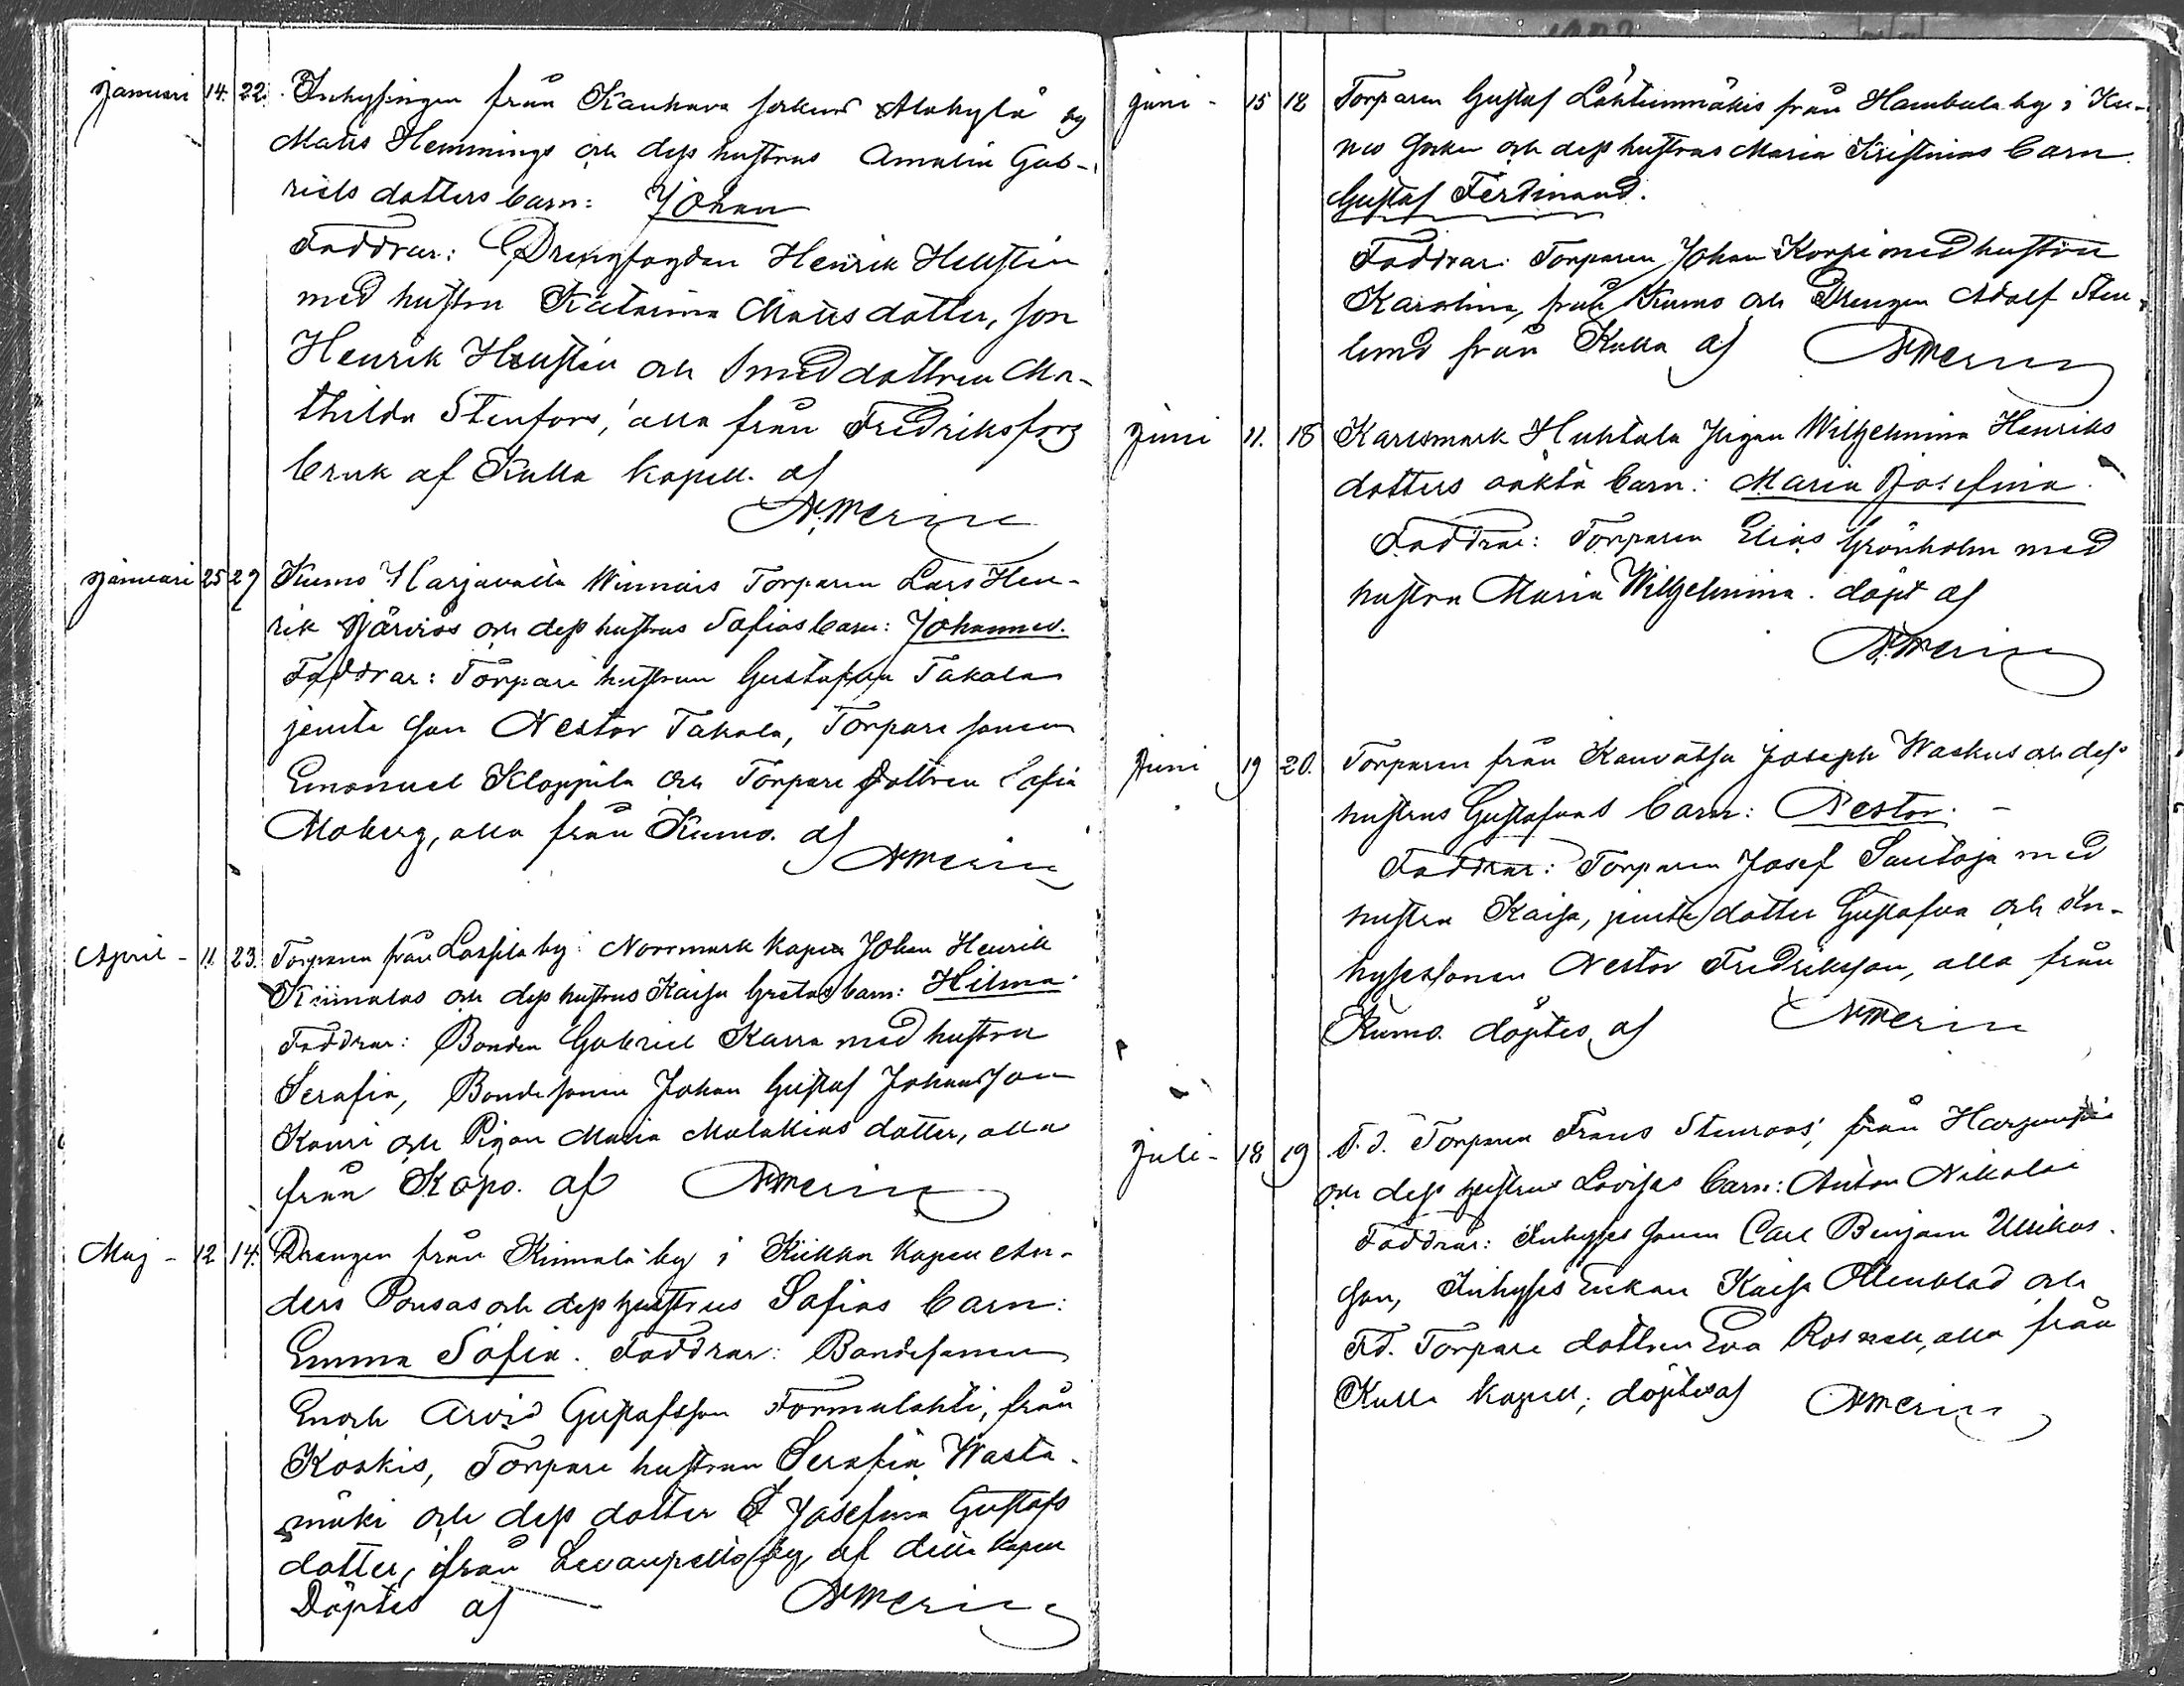 januari 14. 22. Inhysingen från Kauhava socken Alakylä by
Matts Hemmings och dess hustrus Amalia Gab-
riels dotters barn: Johan
Faddrar: Drengfogden Henrik Hellstén
med hustru Katarina Matts dotter, son
Henrik Hellstén och Smeddottren Ma-
thilda Stenfors, alla från Fredriksfors
bruk af Kulla kapell. af
januari 25 29 Kumo Harjavalta Torparen Lars Hen-
rik Järvis och dess hustrus Sofias barn: Johannes.
Faddrar: Torpare hustrun Gustafva Takala
jemte son Nestor Takala, Torpare sonen
Emanuel Kloppila och Torpare dottren Sofia
Moberg, alla från Kumo. af
April - 11. 23. Torparen från Lassila by i Norrmark kapell Johan Henrik
och dess hustrus Kaisa Gretas barn: Hilma
Faddrar: Bonden Gabriel Karra med hustru
Serafia, Bondesonen Johan Gustaf Johansson
Kauri och Pigan Maria Malakias dotter, alla
från af
Maj - 12 14. Drengen från Kiimala by i Kiikka kapell An-
ders Ponsas och dess hustrus Sofias barn:
Emma Sofia. Faddrar: Bondesonen
Enoch Arvid Gustafsson Formulahti, från
Koskis, Torpare hustrun Serafia Wasta-
mäki och dess dotter Josefina Gustafs
dotter, från Levanpelto by, af detta kapell
Döptes af
juni - 15 18 Torparen Gustaf Lähteenmäkis från Hambula by i Ku-
mo socken och dess hustrus Maria Kristinas barn
Gustaf Ferdinand.
Faddrar: Torparen Johan Korpi med hustru
Karolina, från Kumo och Drengen Adolf Sten-
lund från Kulla af
juni 11. 18 Karlsmark Huhtala Pigan Wilhelmina Henriks
dotters oäkta barn: Maria Josefina.
Faddrar: Torparen Elias Grönholm med
hustru Maria Wilhelmina. döpt af
Juni 19 20. Torparen från Kauvatsa Joseph Waskus och dess
hustrus Gustafvas barn: Nestor. -
Faddrar: Torparen Josef Santoja med
hustru Kaisa, jemte dotter Gustafva och In-
hysessonen Nestor Fredriksson, alla från
Kumo. döptes af
juli - 18 19 F.d. Torparen Frans Stenroos, från
och dess hustrus Lovisas barn: Anton Nikolai
Faddrar: Inhyses sonen Carl Benjam Ullrikas-
son, Inhyses Enkan Kaisa Ollenblad och
F.d. Torpare dottren Eva Rosnell, alla från
Kulla kapell; döptes af